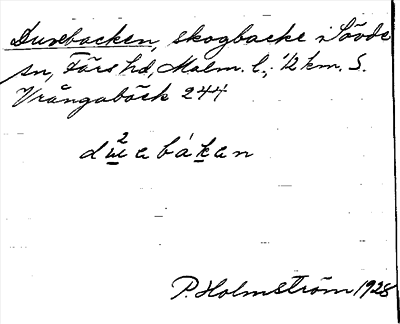 Duvebacken, skogbacke i Sövde
sn, Färs hd, Malm. l., 1/2 km. S.
Vrångabäck 244
P. Holmström 1928